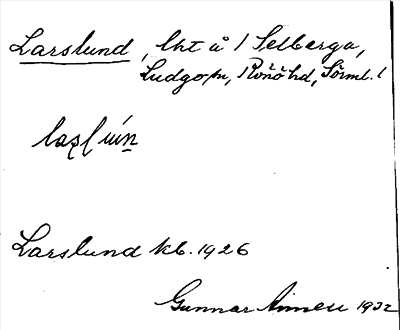 Larslund, lht å / Selberga,
Ludgo sn, Rönö hd, Sörml. /
Larslund kb. 1926
Gunnar 1932